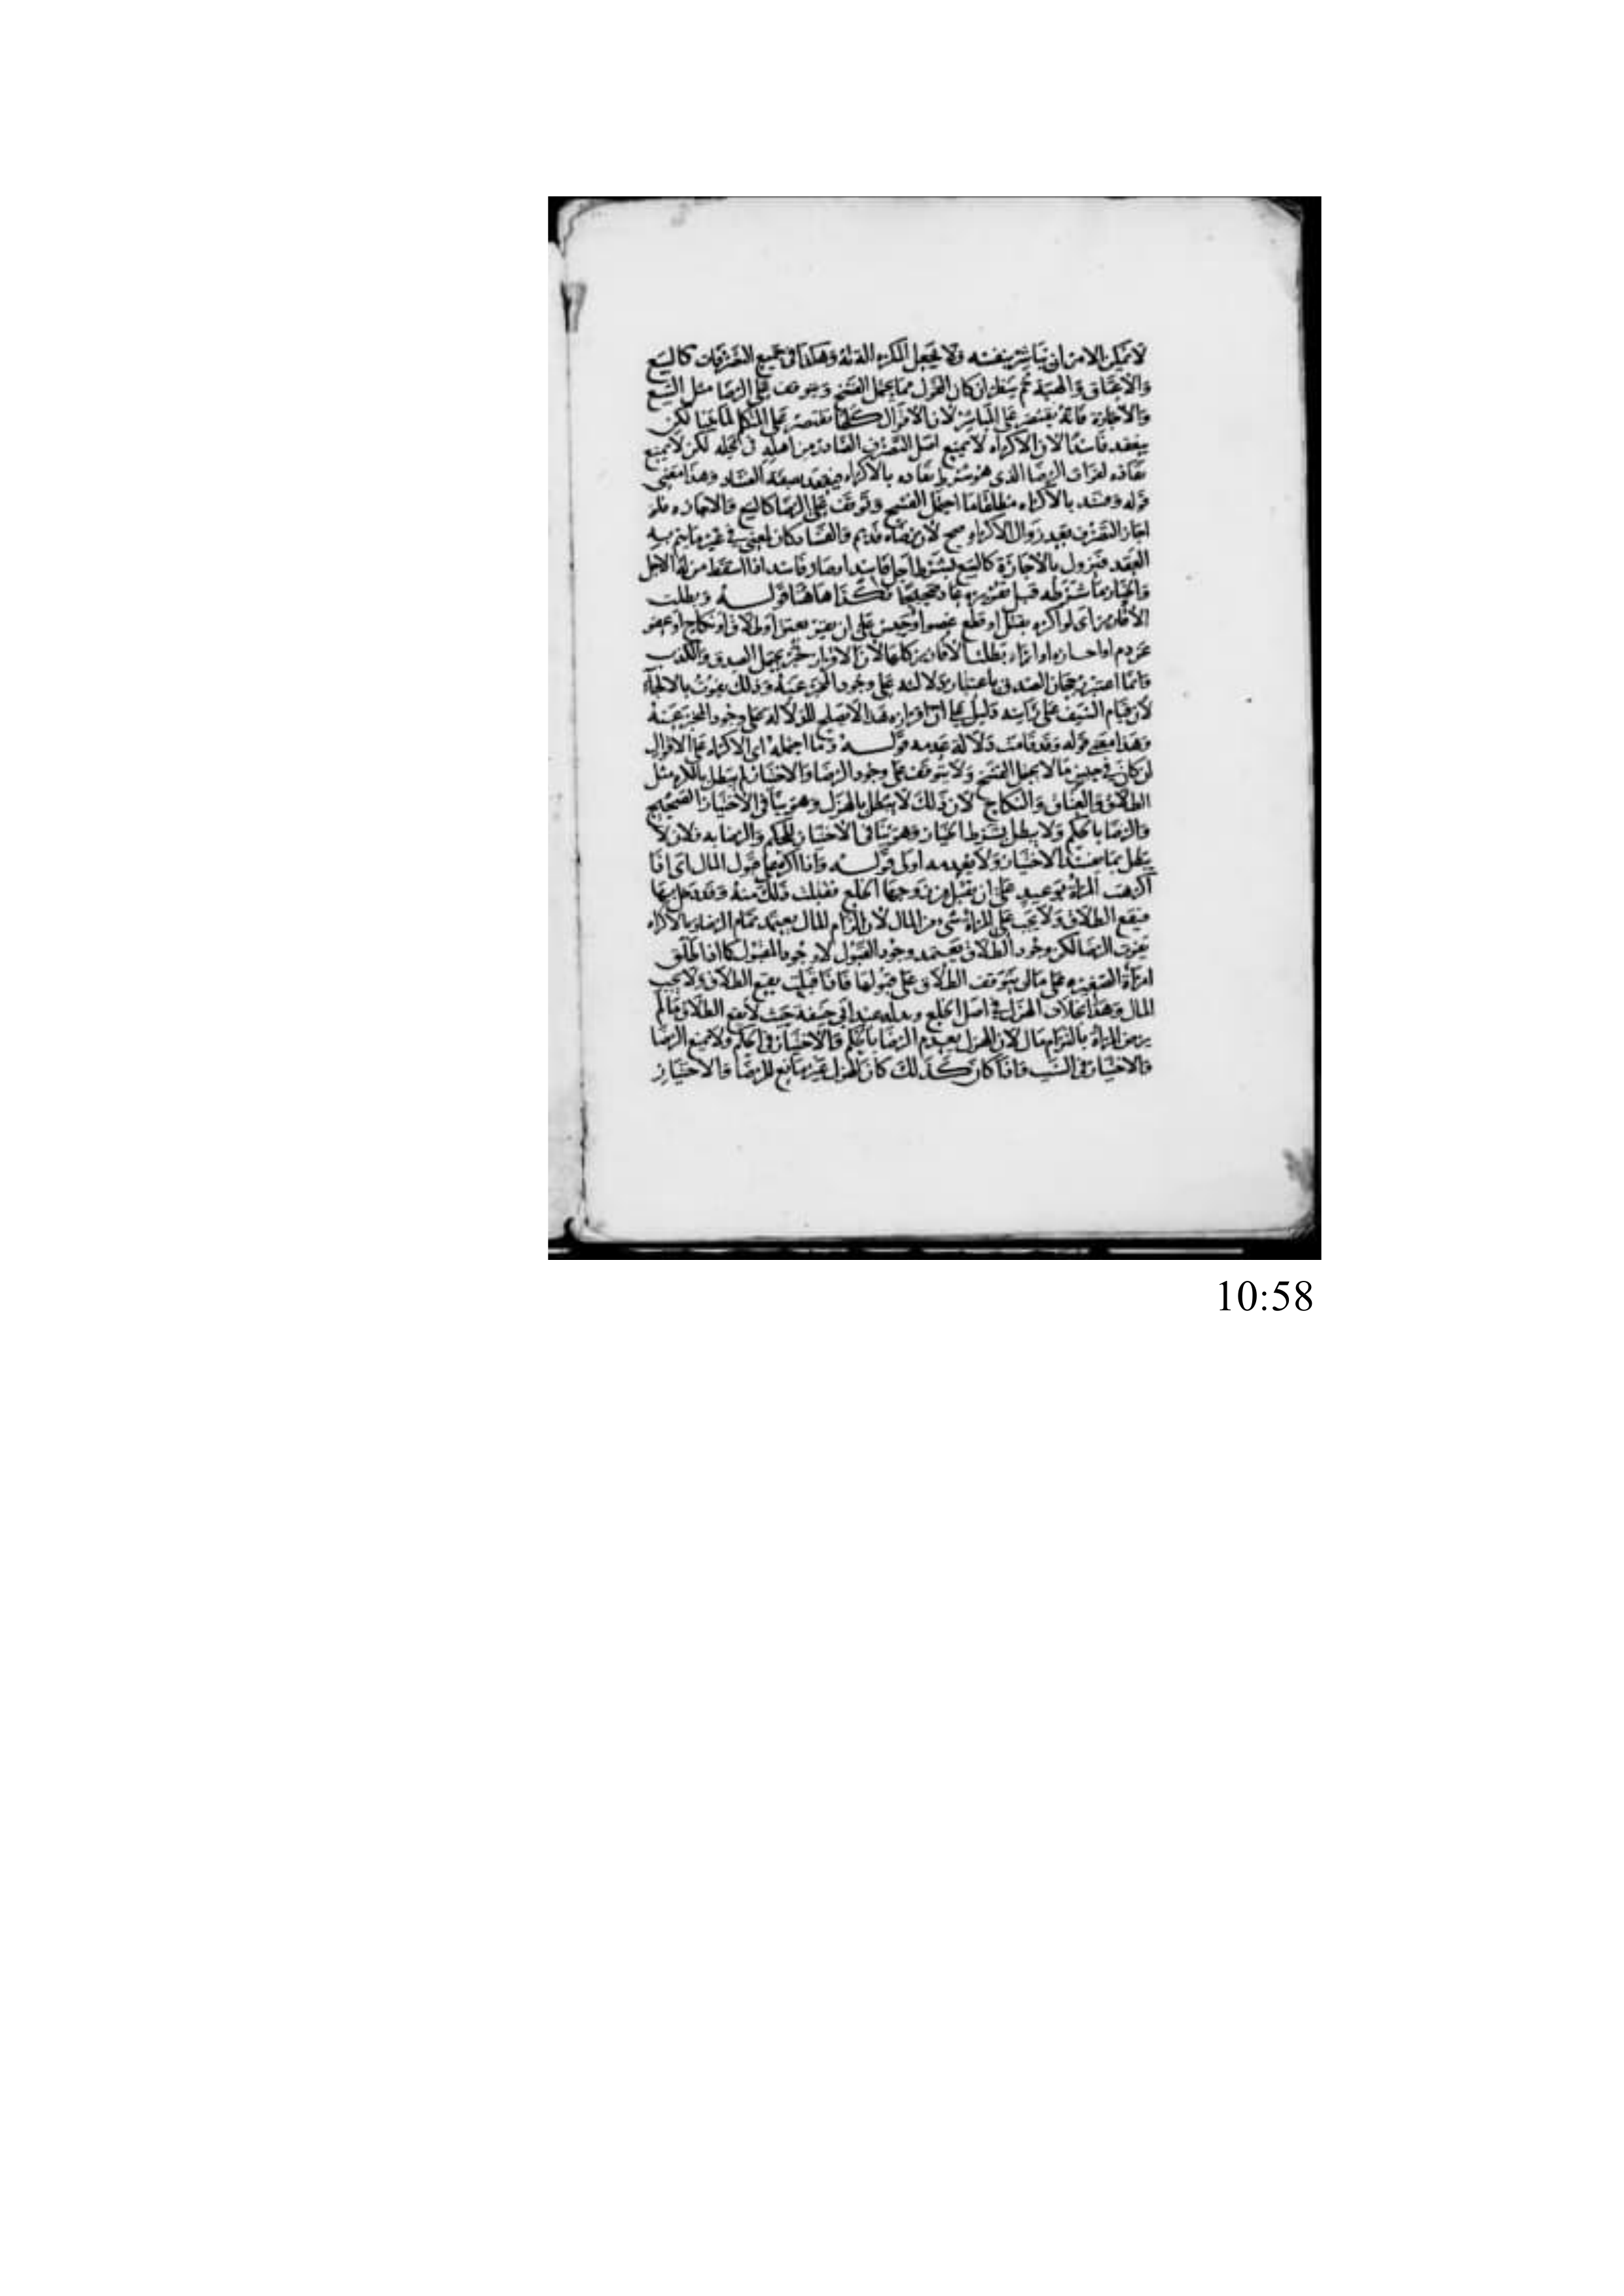 لا يمكن الامر ان يباشر بنفسه ولا يجعل المكره الة له وهكذا في جميع التصرفات كالبيع
والاعتاق والهبة ثم ينظر ان كان القول مما يحتمل الفسخ ويتوقف على الرضا مثل البيع
والاجارة فانه يقتصر على المباشر لان الاقوال كلها تقتصر على المتكلم لكن
ينعقد فاسدا لان الاكراه لا يمنع اصل التصرف الصادر من اهله في محله لكن لا يمنع
نفاذه لفوات الرضا الذي هو شرط نفاذه بالاكراه فينعقد بصفة الفساد وهذا معنى
قوله وفسد بالاكراه مطلقا ما احتمل الفسخ وتوقف على الرضا كالبيع والاجاره فلو
اجاز التصرف بعد زوال الاكراه صح لان رضاه قد تم والفساد كان لمعنى في غير ما يتم به
العقد فيزول بالاجازة كالبيع بشرط اجل فاسد او خيار فاسد اذا اسقط من له الاجل
والخيار ما شرط له قبل تقرره عاد صحيحا فكذا هاهنا قوله وبطلت
الاقارير اي لو اكره بقتل او قطع عضو او حبس على ان يقر بعتق او طلاق او نكاح او عفو
عن دم او اجازة او ابراء بطلت الاقارير كلها لان الاقرار خبر يحتمل الصدق والكذب
وانما اعتبر رجحان الصدق باعتبار دلالته على وجود المخبر عنه وذلك يفوت بالالجاء
لان قيام السيف على راسه دليل على ان اقراره هذا لا يصلح للدلاله على وجود المخبر عنه
وهذا معنى قوله وقد قامت دلالة عدمه قوله وما احتمله اي الاكراه على الاقوال
ان كان في جنس ما لا يحتمل الفسخ ولا يتوقف على وجود الرضا والاختيار لم يبطل بالكره مثل
الطلاق والعتاق والنكاح لان ذلك لا يبطل بالهزل وهو ينافي الاختيار الصحيح
والرضا بالحكم ولا يبطل بشرط الخيار وهو ينافي الاختيار للحكم والرضا به فلان لا
يبطل بما يفسد الاختيار ولا يعدمه اولى قوله واذا اكره على قبول المال اي اذا
اكرهت المراة بوعيد على ان تقبل من زوجها الخلع فقبلت ذلك منه وقد دخل بها
فيقع الطلاق ولا يجب على المراة شيء من المال لان التزام المال يعتمد تمام الرضا وبالاكراه
يفوت الرضا لكن وجود الطلاق يعتمد وجود القبول لا وجود المقبول كما اذا طلق
امراة الصغيرة على مال يتوقف الطلاق على قبولها فاذا قبلت يقع الطلاق ولا يجب
المال وهذا بخلاف الهزل في اصل الخلع وبدله عند ابي حنيفة حيث لا يقع الطلاق ما لم
يرض المراة بالتزام مال لان الهزل يعدم الرضا بالحكم والاختيار في الحكم ولا يمنع الرضا
والاختيار في السبب واذا كان كذلك كان الهزل غير مانع للرضا والاختيار
10:58